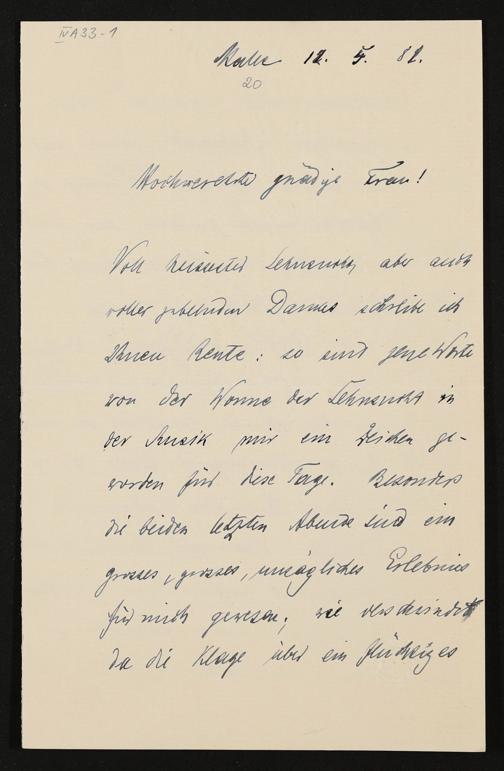 IV A 33-1
12. 5. 82.
20
Hochverehrte gnädige Frau!
Voll heissester Sehnsucht, aber auch
voller jubelnden Dankes schreibe ich
Ihnen heute: so sind jene Worte
von der Wonne der Sehnsucht in
der Musik mir ein Zeichen ge-
worden für diese Tage. Besonders
die beiden letzten Abende sind ein
grosses, grosses, unsägliches Erlebnis
für mich gewesen; wie verschwindet
da die Klage über ein flüchtiges